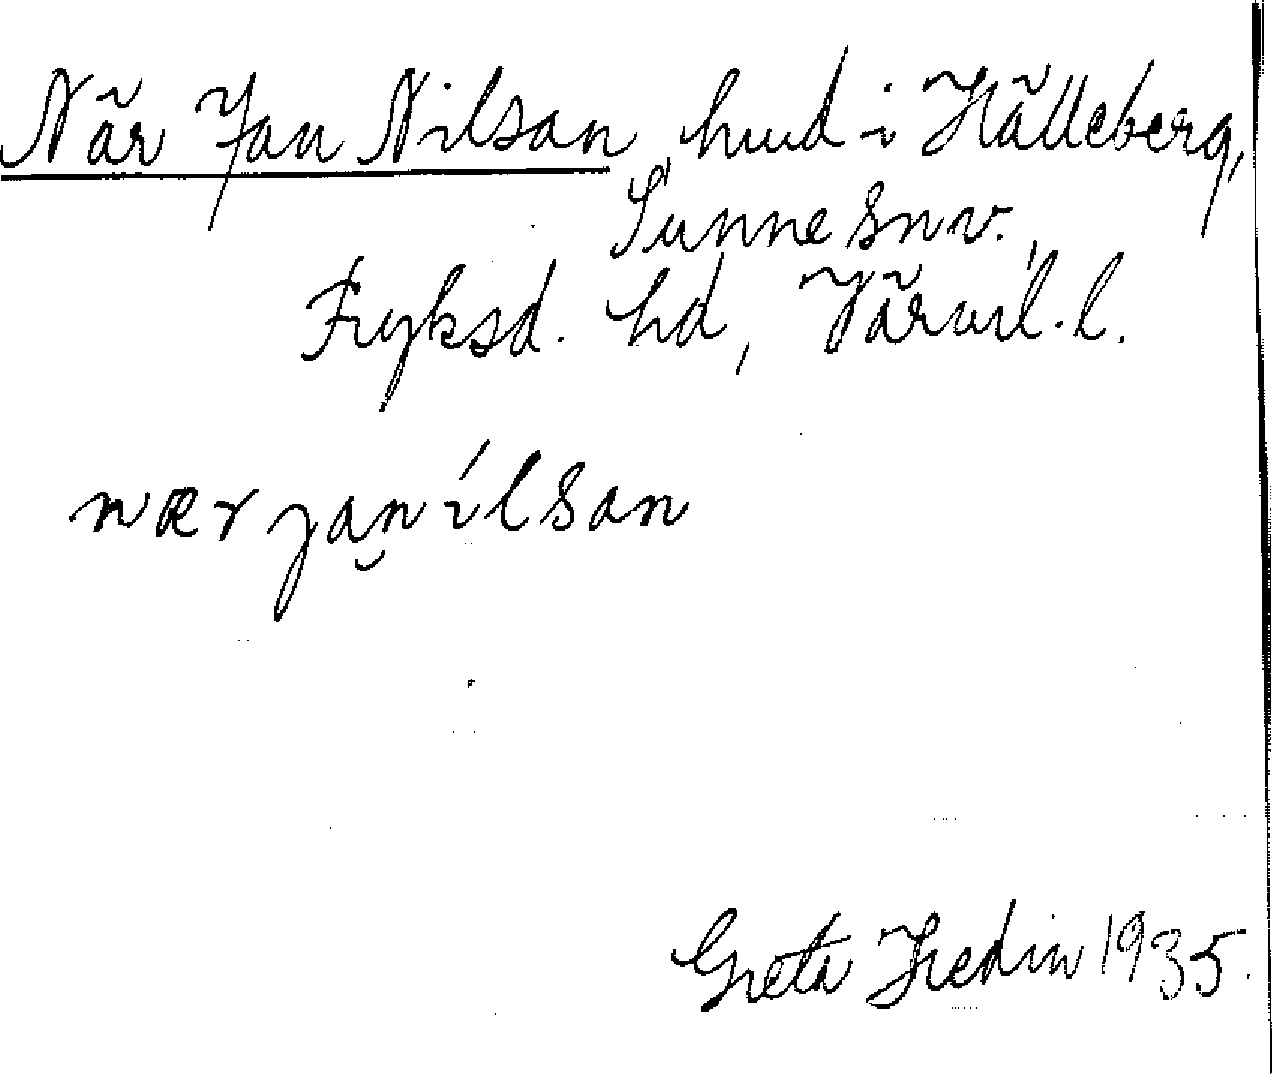 När Jan Nilsan, hud i Hälleberg,
Sunne snv.,
Fryksd. hd, Värml. l.
nær jan̮ ílsan
Greta Hedin 1935.